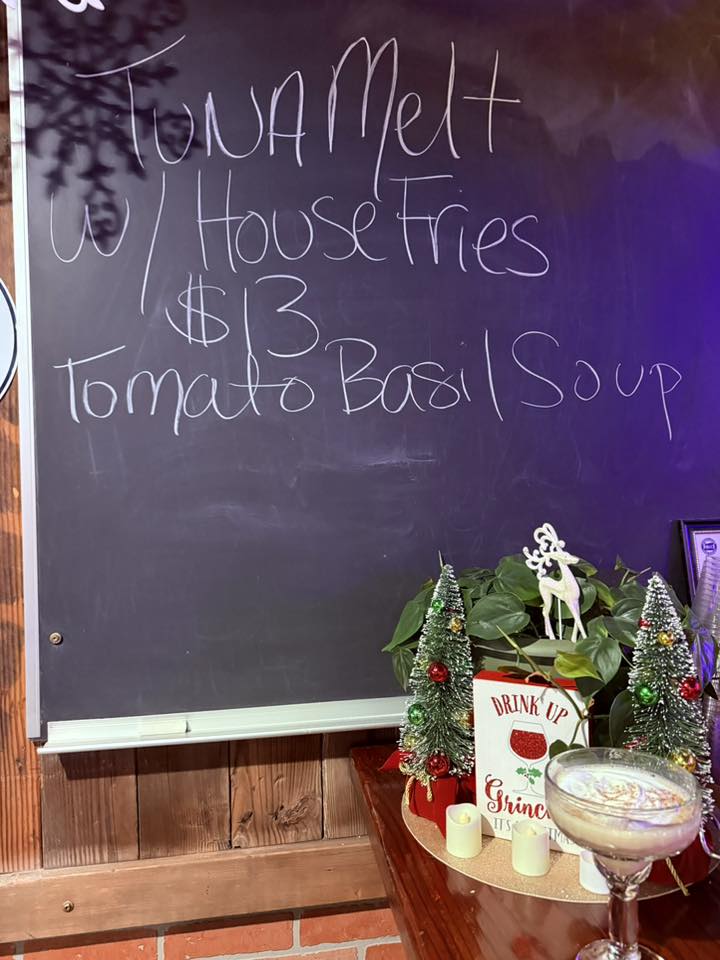 TUNA Melt
w/ House Fries
$13
Tomato Basil Soup
DRINK UP